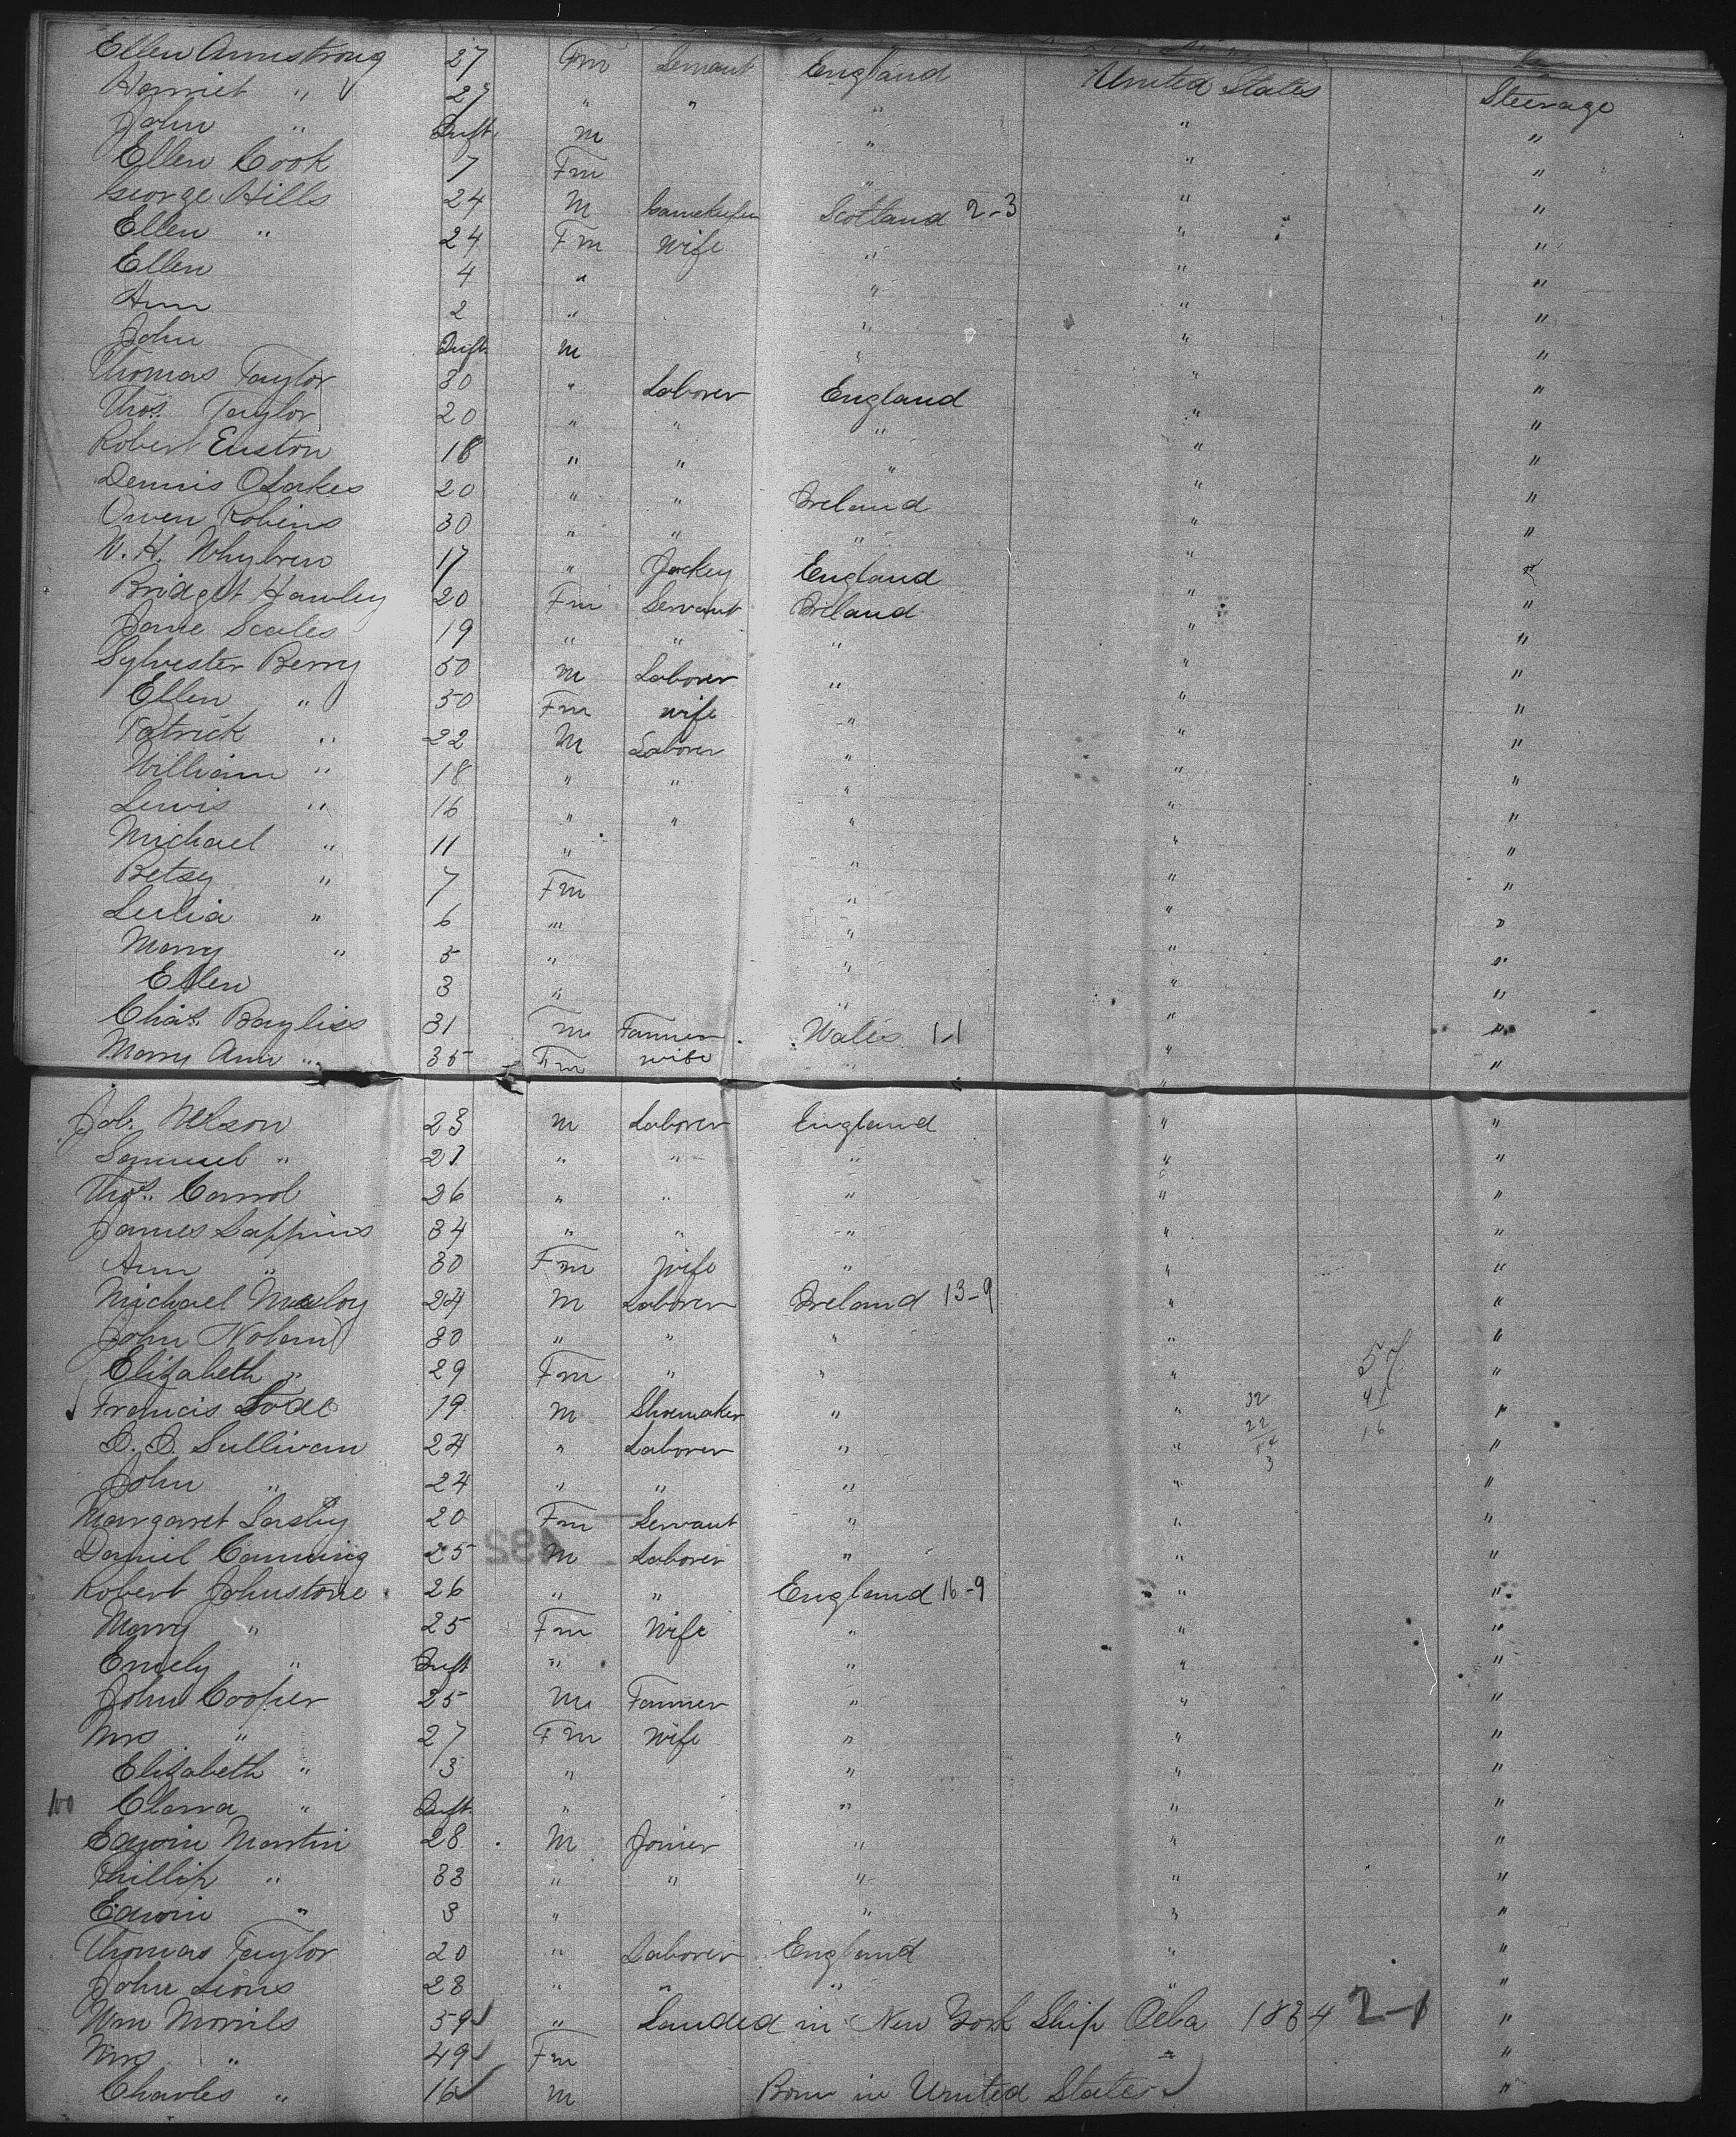 Ellen Armstrong 27 Fm Servant England United States Steerage
Harriet " 27 " " " " "
John " Inft. m " " "
Ellen Cook 7 Fm " " "
George Hills 24 M Gamekeeper Scotland 2-3 " "
Ellen " 24 Fm Wife " " "
Ellen 4 " " " "
Ann 2 " " " "
John Inft. m " " "
Thomas Taylor 30 " Laborer England " "
Thos. Taylor 20 " " " " "
Robert Euston 18 " " " " "
Dennis 20 " " Ireland " "
Owen Robins 30 " " " " "
W. H. Whybrew 17 " Jockey England " "
Bridget Hawley 20 Fm Servant Ireland " "
Jane Scales 19 " " " " "
Sylvester Berry 50 m Laborer " " "
Ellen " 50 Fm wife " " "
Patrick " 22 M Laborer " " "
William " 18 " " " " "
Lewis " 16 " " " " "
Michael " 11 " " " "
Betsy " 7 Fm " " "
Lulia " 6 " " " "
Marry " 5 " " " "
Ellen 3 " " " "
Chas. Bayliss 31 m Farmer Wales 1-1 " "
Marry Ann " 35 Fm wife " " "
Job. Nelson 23 m Laborer England " "
Samuel " 21 " " " " "
Thos. Carrol 26 " " " " "
James Lappins 34 " " " " "
Ann " 30 Fm wife " " "
Michael Maloy 24 M Laborer Ireland 13-9 " "
John Noland 30 " " " " "
Elizabeth " 29 Fm " " " 57 "
Francis 19 m Shoemaker " " 32 41 "
D. D. Sullivan 24 " Laborer " " 22 16 "
John " 24 " " " " 54 3 "
Margaret 20 Fm Servant " " "
Daniel Canning 25 M Laborer " " "
Robert Johnstone 26 " " England 16-9 " "
Marry " 25 Fm Wife " " "
Emely " Inft " " " "
John Cooper 25 m Farmer " " "
Mrs " 27 Fm Wife " " "
Elizabeth " 3 " " " "
100 Clarra " Inft. " " " "
Edwin Martin 28 M Joiner " " "
Phillip " 33 " " " " "
Edwin " 3 " " " "
Thomas Taylor 20 " Laborer England " "
John Lions 28 " " " " "
Wm Morrils 59 " Landed in New York Ship 1834 2-1 "
Mrs " 49 Fm " "
Charles " 16 m Born in United States "